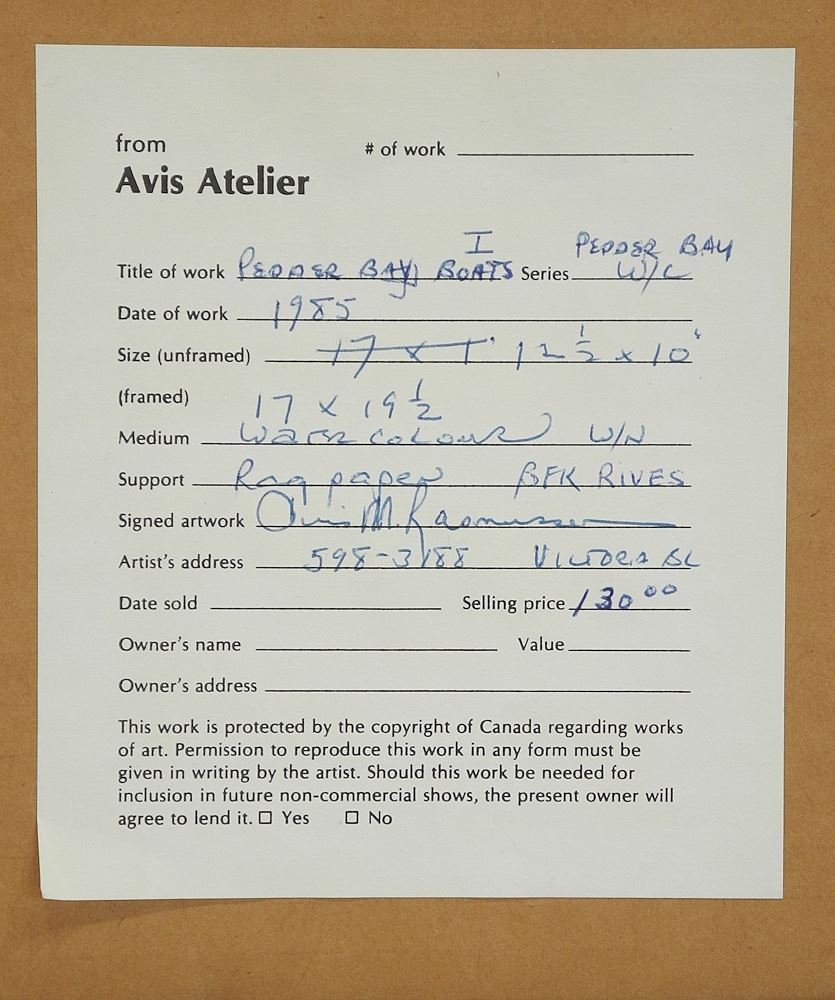 from # of work
Avis Atelier
I PEDDER BAY
Title of work PEDDER BAY BOATS Series W/C
Date of work 1985
Size (unframed) 17 x 1" 12 1/2 x 10"
(framed) 17 x 19 1/2
Medium Watercolour W/N
Support Rag paper BFK RIVES
Signed artwork Avis M. Rasmussen
Artist's address 598-3188 VICTORIA BC
Date sold Selling price 130 00
Owner's name Value
Owner's address
This work is protected by the copyright of Canada regarding works
of art. Permission to reproduce this work in any form must be
given in writing by the artist. Should this work be needed for
inclusion in future non-commercial shows, the present owner will
agree to lend it. ☐ Yes ☐ No